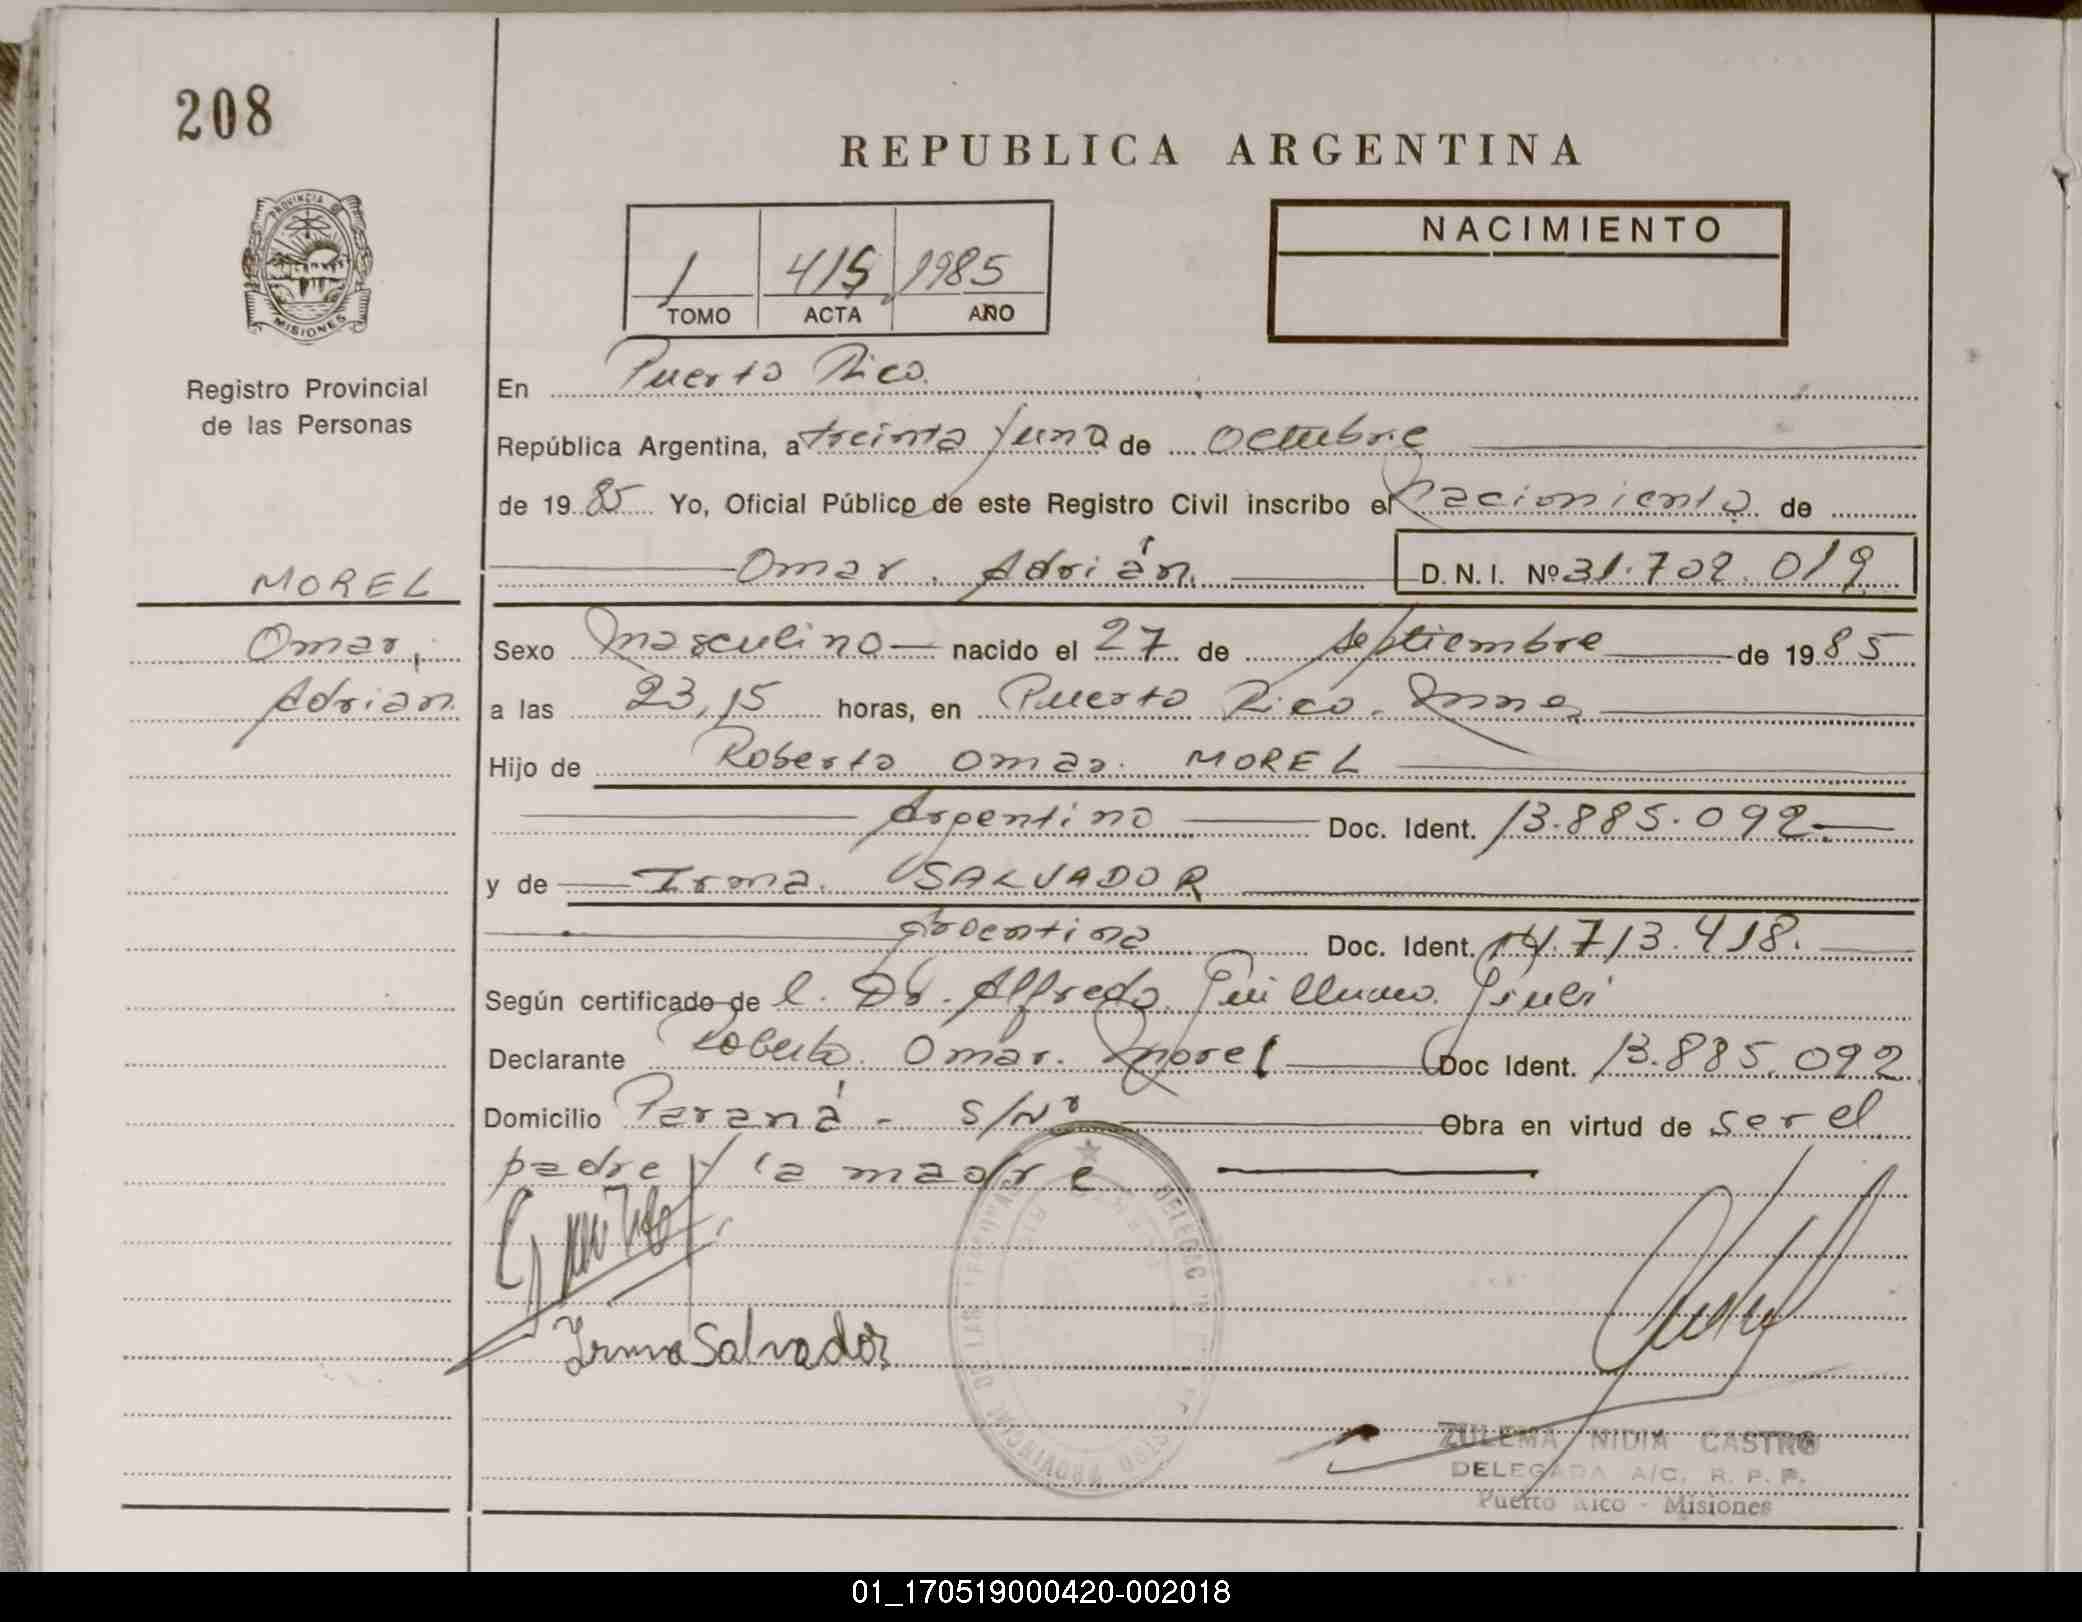 208
REPUBLICA ARGENTINA
PROVINCIA DE
MISIONES
Registro Provincial
de las Personas
1 415 1985
TOMO ACTA AÑO
NACIMIENTO
En Puerto Rico
República Argentina, a treinta y uno de octubre
de 1985 Yo, Oficial Público de este Registro Civil inscribo el nacimiento de
Omar Adrián D.N.I. Nº 31.702.019
MOREL
Omar,
Adrian
Sexo Masculino nacido el 27 de septiembre de 1985
a las 23,15 horas, en Puerto Rico. Mnes
Hijo de Roberto Omar MOREL
Argentino Doc. Ident. 13.885.092
y de Irma SALVADOR
argentina Doc. Ident. 14.713.418.
Según certificado de l. Dr. Alfredo Guillermo
Declarante Roberto Omar Morel Doc Ident. 13.885.092
Domicilio Paraná - S/Nº Obra en virtud de ser el
padre y la madre
Irma Salvador
ZULEMA NIDIA CASTRO
DELEGADA A/C. R. P. P.
Puerto Rico - Misiones
01_170519000420-002018